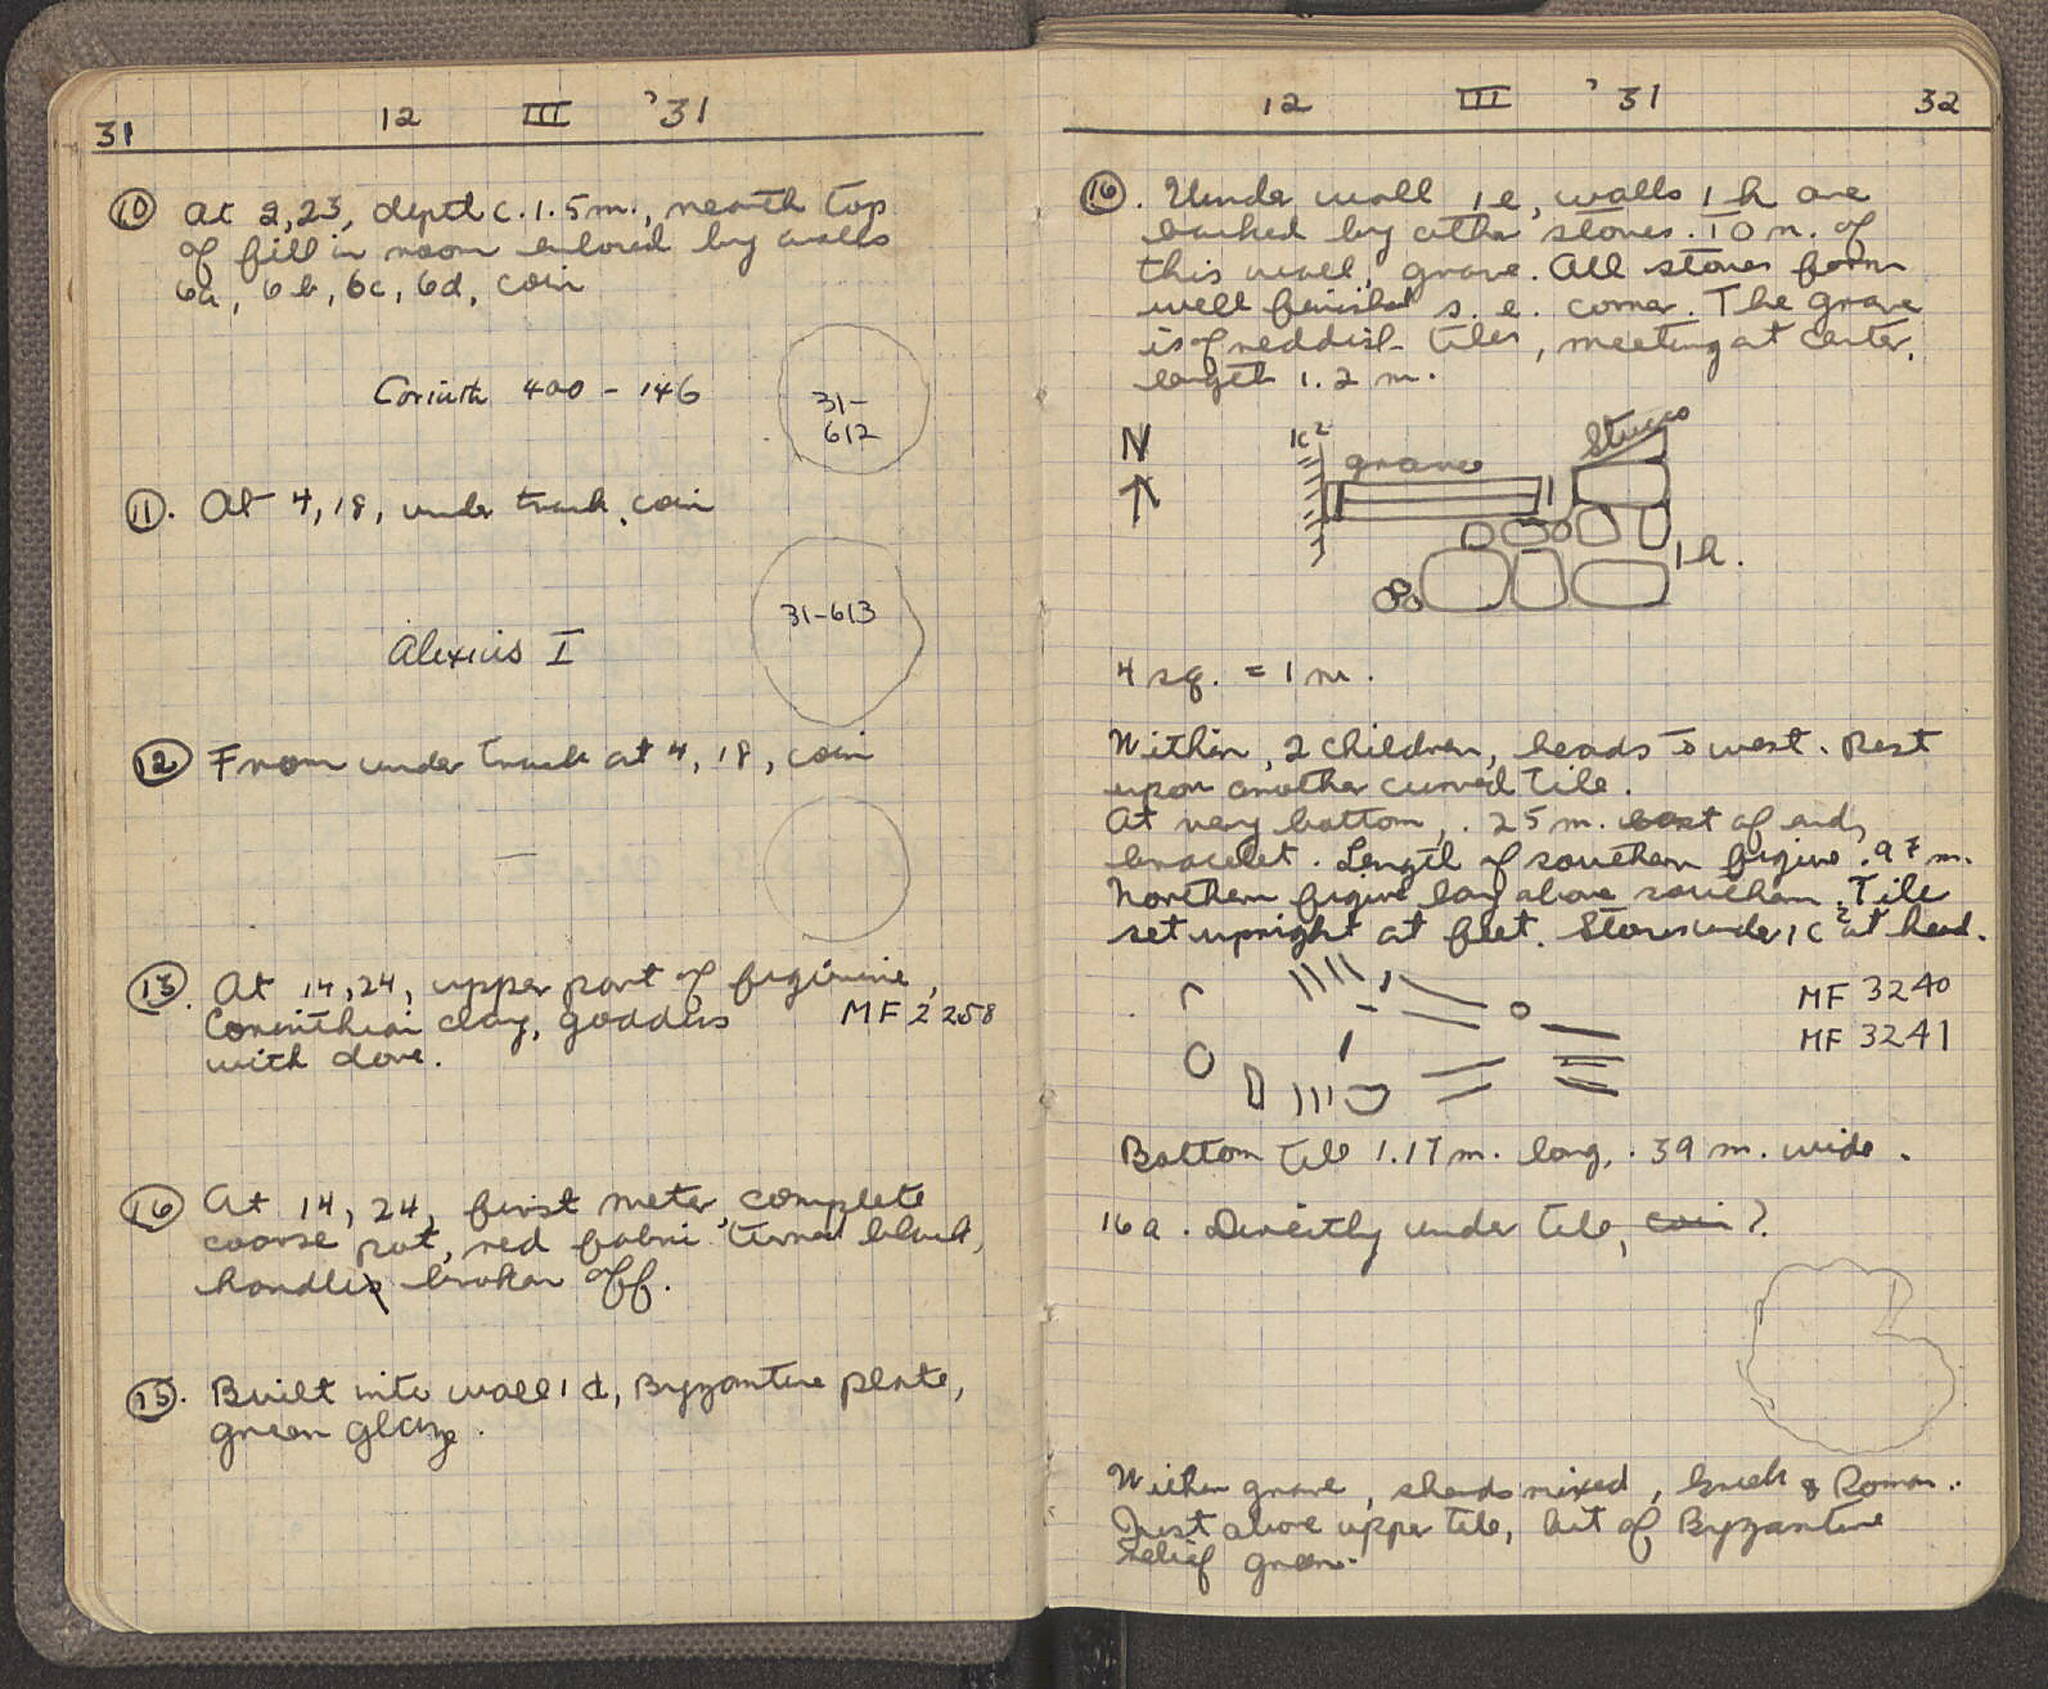 31 12 III '31
10 At 2,23, depth c. 1.5 m., near th top
of fill in room enlored by walls
6a, 6b, 6c, 6d, coin
Corinth 400 - 146
31-
612
11. At 4,18, under track, coin
31-613
Alexius I
12 From under track at 4,18, coin
—
13. At 14,24, upper part of figurine,
Corinthian clay, goddess MF 2258
with dove.
14 At 14, 24, first meter, complete
coarse pot, red fabric turned black,
handles broken off.
15. Built into wall 1 d, Byzantine plate,
green glaze.
12 III '31 32
16. Under wall 1e, walls 1h are
backed by other stones. To n. of
this wall, grave. All stones form
well finished s. e. corner. The grave
is of reddish tiles, meeting at center,
length 1.2 m.
N
1c²
grave
Stucco
1h.
4 sq. = 1 m.
Within, 2 children, heads to west. Rest
upon another curved tile.
At very bottom, .25 m. of end,
bracelet. Length of southern figure .97 m.
Northern figure lay above southern. Tile
set upright at feet. Stones under 1c² at head.
MF 3240
MF 3241
Bottom tile 1.17 m. long, .39 m. wide.
16a. Directly under tile, coin?
Within grave, sherds mixed, Greek & Roman.
Just above upper tile, bit of Byzantine
relief green.